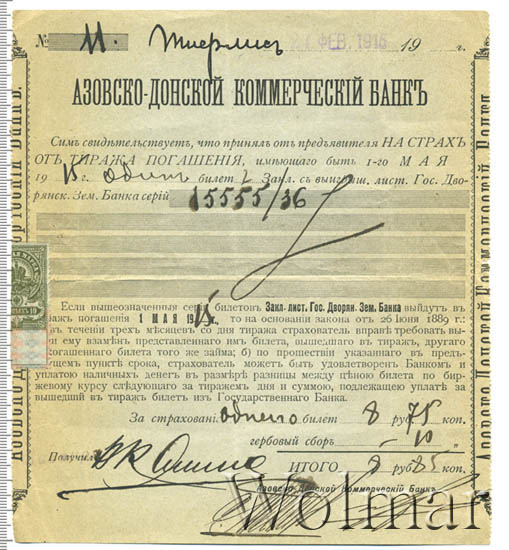 № 11. Тифлисъ 21 ФЕВ. 1915 19 г.
АЗОВСКО-ДОНСКОЙ КОММЕРЧЕСКІЙ БАНКЪ
Симъ свидѣтельствуетъ, что принялъ отъ предъявителя НА СТРАХЪ
ОТЪ ТИРАЖА ПОГАШЕНІЯ, имѣющаго быть 1-го МАЯ
1915 г. одинъ билетъ Закл. съ выигрыш. лист. Гос. Дво-
рянск. Зем. Банка серій 15555/36
Если вышеозначенные серіи билетовъ Закл.-лист. Гос. Дворян. Зем. Банка выйдутъ въ
тиражъ погашенія 1 МАЯ 1915, то на основаніи закона отъ 26 Іюня 1889 г.:
въ теченіи трехъ мѣсяцевъ со дня тиража страхователь вправѣ требовать вы-
ему взамѣнъ представленнаго имъ билета, вышедшаго въ тиражъ, другаго
погашеннаго билета того же займа; б) по прошествіи указаннаго въ пред-
пунктѣ срока, страхователь можетъ быть удовлетворенъ Банкомъ и
уплатою наличныхъ денегъ въ размѣрѣ разницы между цѣною билета по бир-
жевому курсу слѣдующаго за тиражемъ дня и суммою, подлежащею уплатѣ за
вышедшій въ тиражъ билетъ изъ Государственнаго Банка.
За страхованіе одного билет 8 руб. 75 коп.
гербовый сборъ 10 „
Получилъ ИТОГО 8 руб. 85 коп.
Азовско-Донской Коммерческій Банкъ
Wolmar